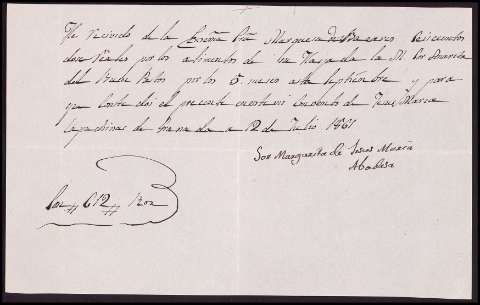 He recivido de la Señora Marquesa de seiscientos
doce reales por los alimentos de su Haya da la M. Sor
del por los 6. meses asta Septiembre y para
que conste doi el presente en este mi Convento de Jesus Maria
Capuchinas de Granada a 12 de Julio 1861
Sor Margarita de Jesus Maria
Abadesa
Son # 612 # Ron